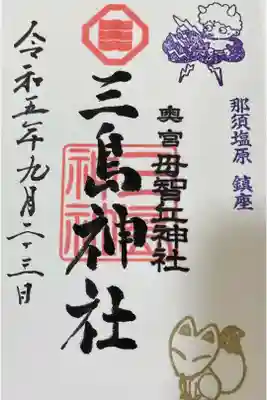 那須塩原 鎮座
奥宮 母智丘神社
三島神社
令和五年九月二十三日